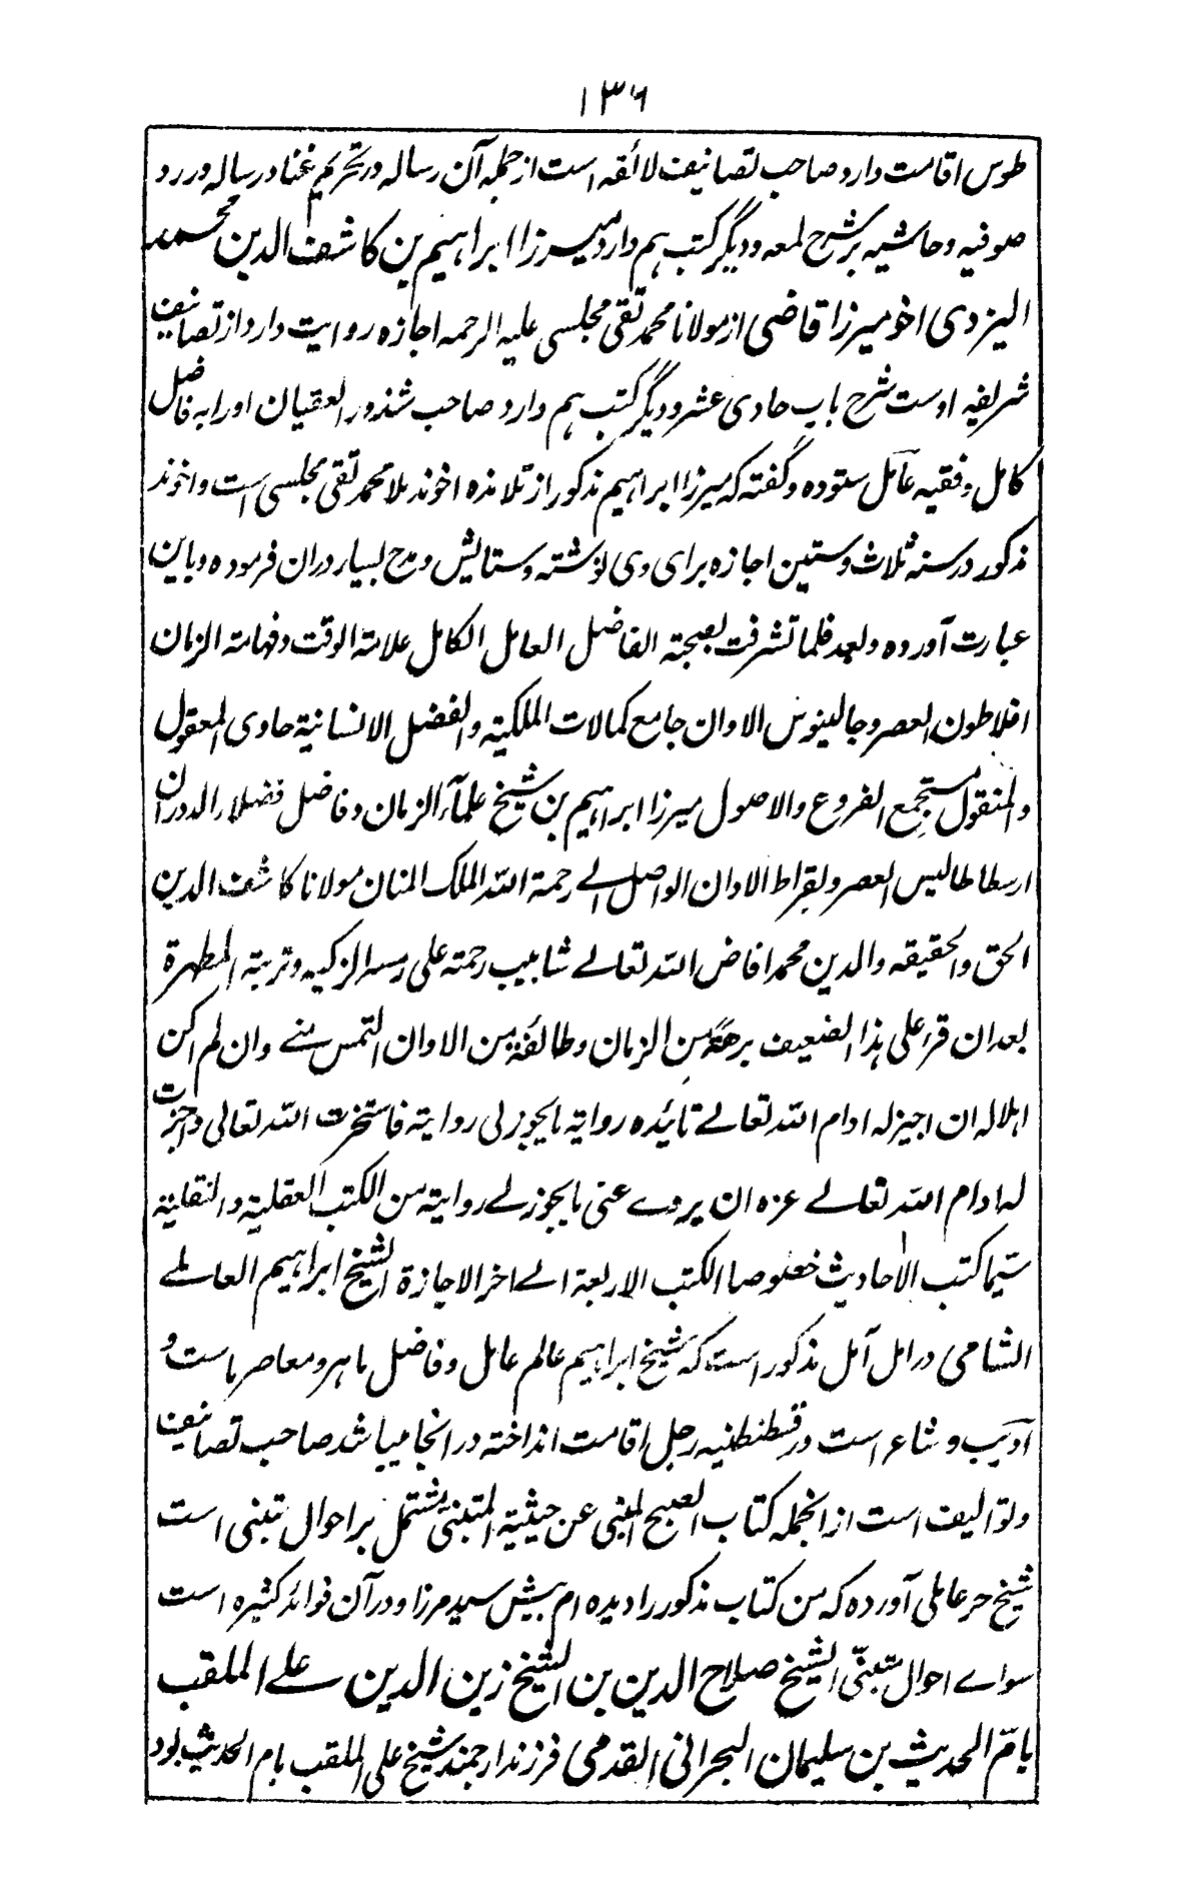 ۱۳۶
طوس اقامت دارد صاحب تصانیف لائقه است از جمله آن رساله در تحریم غنا و رساله در رد
صوفیه و حاشیه بر شرح لمعه و دیگر کتب هم دارد میرزا ابراهیم بن کاشف الدین محمد
الیزدی اخو میرزا قاضی از مولانا محمد تقی مجلسی علیه الرحمه اجازه روایت دارد از تصانیف
شریفه اوست شرح باب حادی عشر و دیگر کتب هم دارد صاحب شذور العقیان اورا به فاضل
کامل و فقیه عامل ستوده و گفته که میرزا ابراهیم مذکور از تلامذه اخوند ملا محمد تقی مجلسی است و اخوند
مذکور در سنه ثلاث و ستین اجازه برای وی نوشته و ستایش و مدح بسیار دران فرموده و باین
عبارت آورده و بعد فلما تشرفت بصحبة الفاضل العامل الکامل علامة الوقت و فهامة الزمان
افلاطون العصر و جالینوس الاوان جامع کمالات الملکیة والفضل الانسانیة حاوی المعقول
والمنقول مستجمع الفروع والاصول میرزا ابراهیم بن شیخ علمآء الزمان و فاضل فضلاء الدوران
ارسطاطالیس العصر و بقراط الاوان الواصل الے رحمة الله الملک المنان مولانا کاشف الدین
الحق والحقیقه والدین محمد افاض الله تعالے شابیب رحمته علی رمسه الزکیه و تربته المطهرة
بعد ان قرء علی هذا الضعیف برهة من الزمان و طائفة من الاوان التمس منے وان لم اکن
اهلا له ان اجیز له ادام الله تعالے تائیده روایة ما یجوز لی روایة فاستخرت الله تعالی و اجزت
له ادام الله تعالے عزه ان یروے عنی ما یجوز لے روایة من الکتب العقلیة والنقلیة
سیما کتب الاحادیث خصوصا الکتب الاربعة الے اخر الاجازة الشیخ ابراهیم العاملے
الشامی در امل آمل مذکور است که شیخ ابراهیم عالم عامل و فاضل ماهر و معاصر ماست و
ادیب و شاعر است در قسطنطنیه رحل اقامت انداخته در انجا میباشد صاحب تصانیف
و توالیف است از انجمله کتاب الصبح المنبی عن حیثیة المتنبی مشتمل بر احوال متنبی است
شیخ حر عاملی آورده که من کتاب مذکور را دیده ام پیش سید مرزا و در آن فوائد کثیره است
سواے احوال متنبّی الشیخ صلاح الدین بن الشیخ زین الدین علے الملقب
بامّ الحدیث بن سلیمان البحرانی القدمی فرزند ارجمند شیخ علی الملقب بام الحدیث بود